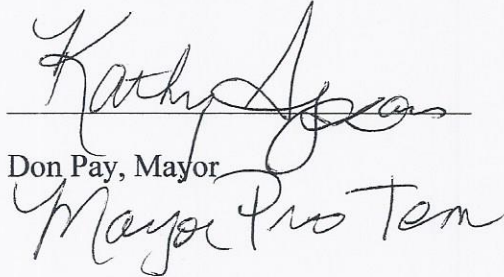 Kathy
Don Pay, Mayor
Mayor Pro Tem